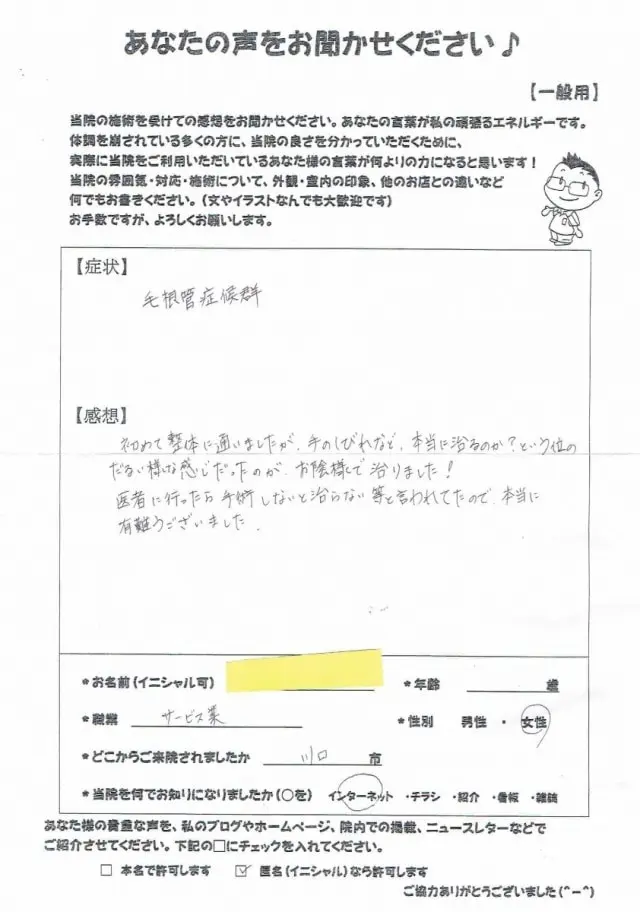 あなたの声をお聞かせください♪
【一般用】
当院の施術を受けての感想をお聞かせください。あなたの言葉が私の頑張るエネルギーです。
体調を崩されている多くの方に、当院の良さを分かっていただくために、
実際に当院をご利用いただいているあなた様の言葉が何よりの力になると思います！
当院の雰囲気・対応・施術について、外観・室内の印象、他のお店との違いなど
何でもお書きください。（文やイラストなんでも大歓迎です）
お手数ですが、よろしくお願いします。
【症状】
毛根管症候群
【感想】
初めて整体に通いましたが、手のしびれなど、本当に治るのか？という位の
だるい様な感じだったのが、お陰様で治りました！
医者に行ったら手術しないと治らない等と言われてたので、本当に
有難うございました。
*お名前（イニシャル可） *年齢 歳
*職業 サービス業 *性別 男性 ・ 女性
*どこからご来院されましたか 川口 市
*当院を何でお知りになりましたか（○を） インターネット ・チラシ ・紹介 ・看板 ・雑誌
あなた様の貴重な声を、私のブログやホームページ、院内での掲載、ニュースレターなどで
ご紹介させてください。下記の□にチェックを入れてください。
□ 本名で許可します ☑ 匿名（イニシャル）なら許可します
ご協力ありがとうございました（^-^）